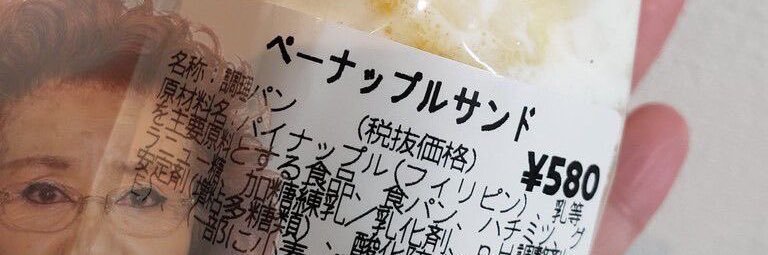 ペーナップルサンド
名称：調理パン
(税抜価格)
¥580
原材料名：パイナップル(フィリピン)、乳等
を主要原料とする食品、食パン、ハチミツ、グ
ラニュー糖、加糖練乳/乳化剤、
安定剤(増粘多糖類)、酸化防
(一部に小麦